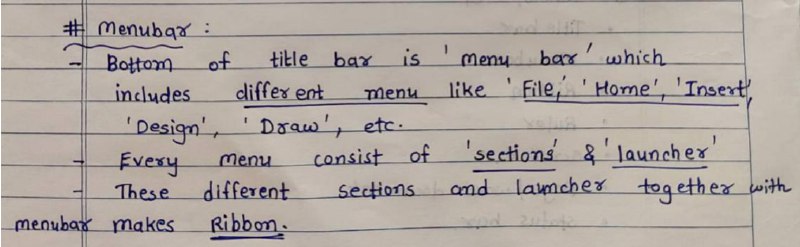 # Menubar :
- Bottom of title bar is 'menu bar' which
includes different menu like 'File', 'Home', 'Insert',
'Design', 'Draw', etc.
- Every menu consist of 'sections' & 'launcher'
- These different sections and launcher together with
menubar makes Ribbon.